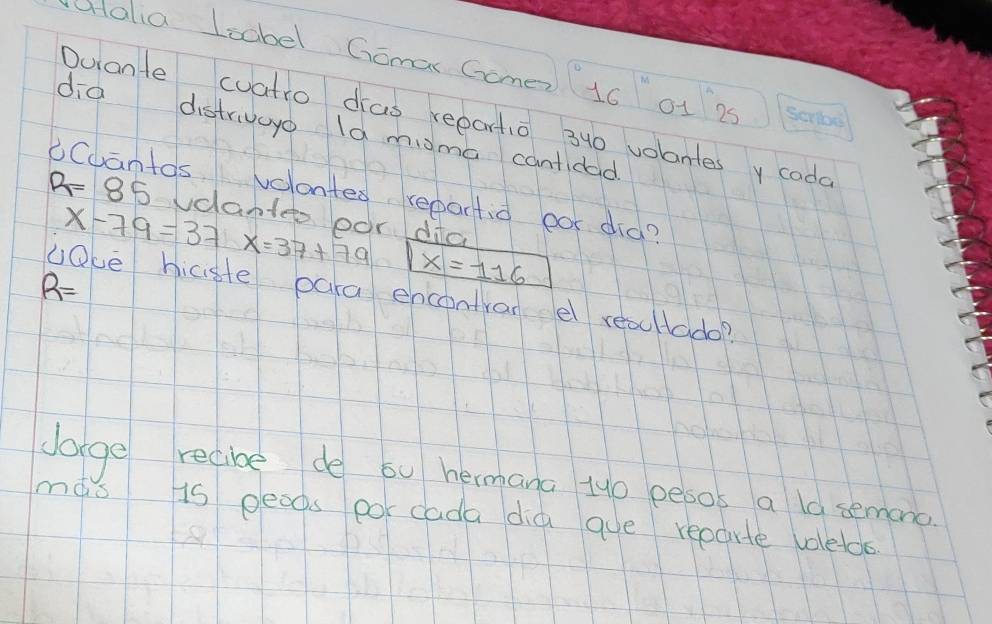 Isabel Gómez Gomez D 16 M 01 A 25 Scribe
Durante cuatro dias repartió 340 volantes y cada
dia distrivuyo la misma cantidad.
¿Cuántos volantes repartió por dia?
R= 85 volantes por dia
x-79=37 x=37+79 x=116
¿Qué hiciste para encontrar el resultado?
R=
Jorge recibe de su hermana 140 pesos a la semana.
más 15 pesos por cada dia que reparte